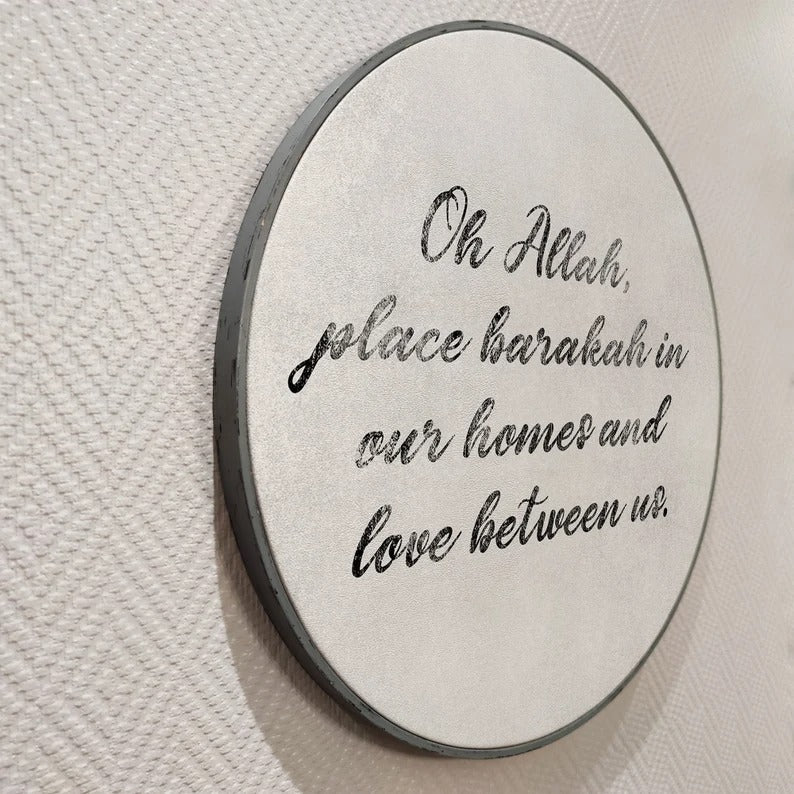 Oh Allah,
place barakah in
our homes and
love between us.